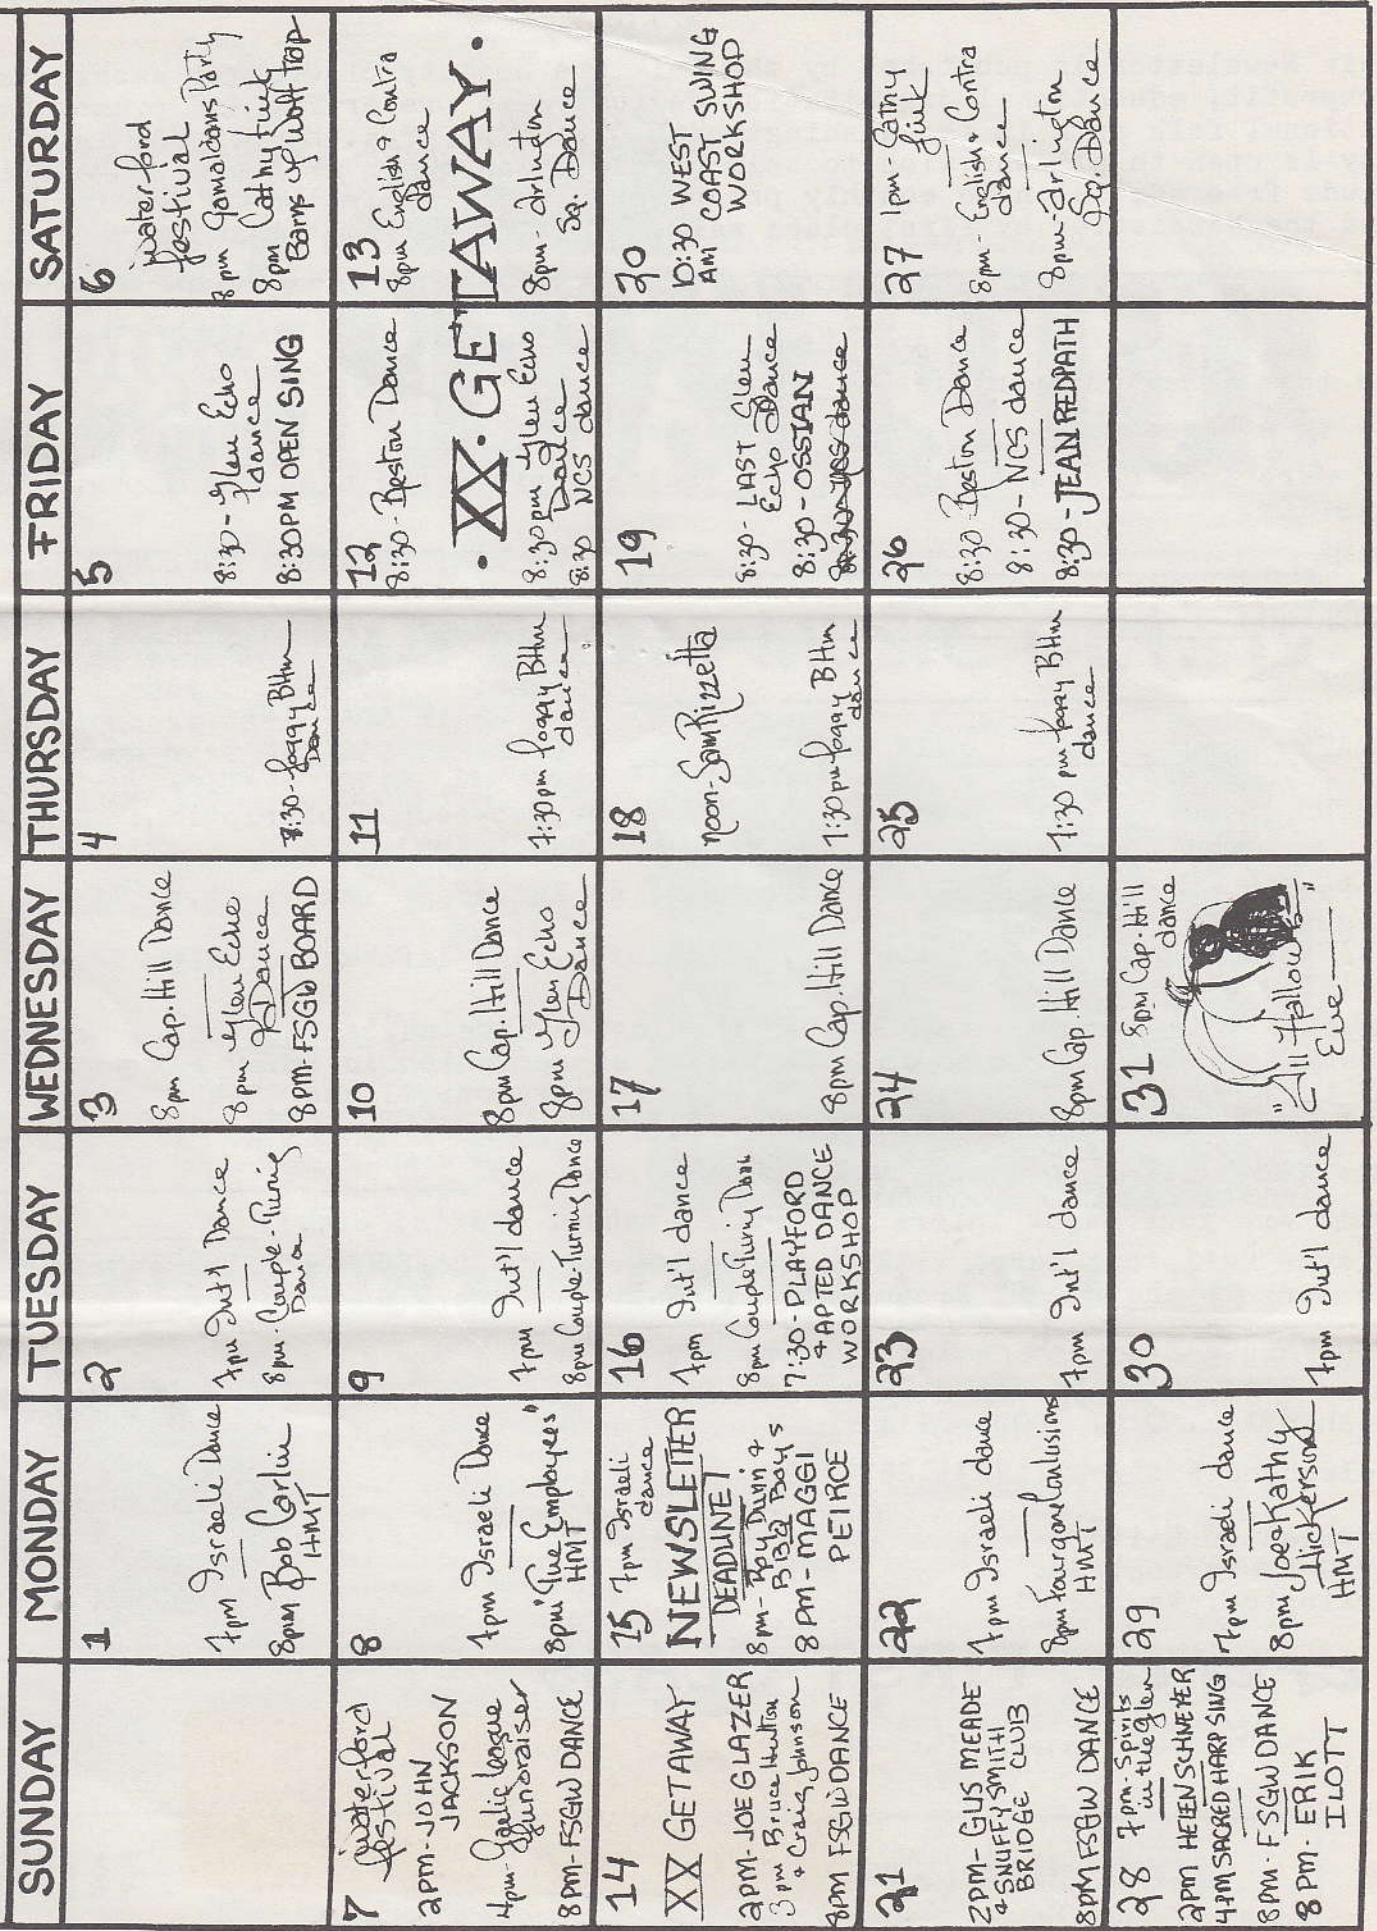 SUNDAY
MONDAY
TUESDAY
WEDNESDAY
THURSDAY
FRIDAY
SATURDAY
1
7pm Israeli Dance
8pm Bob Carlin
HMT
2
7pm Int'l Dance
8pm-Couple-Turning
Dance
3
8pm Cap. Hill Dance
8pm Glen Echo
Dance
8PM-FSGW BOARD
4
7:30-Foggy BHm
Dance
5
8:30-Glen Echo
dance
8:30PM OPEN SING
6
Waterford
festival
8pm Gamaldans Party
8pm Cathy Fink
Barns of Wolftrap
7
Waterford
festival
2PM-JOHN
JACKSON
4pm-Gaelic league
fundraiser
8PM-FSGW DANCE
8
7pm Israeli Dance
8pm "The Employees"
HMT
9
7pm Int'l dance
8pm Couple-Turning Dance
10
8pm Cap. Hill Dance
8pm Glen Echo
Dance
11
7:30pm foggy BHm
dance
12
8:30-Reston Dance
· XX · GETAWAY ·
8:30pm Glen Echo
Dance
8:30 NCS dance
13
8pm English & Contra
dance
8pm-Arlington
Sq. Dance
14
XX GETAWAY
2PM-JOE GLAZER
3pm Bruce Hutton
& Craig Johnson
8PM FSGW DANCE
15 7pm Israeli
dance
NEWSLETTER
DEADLINE!
8pm-Roy Dunn &
BBQ Boys
8PM-MAGGI
PEIRCE
16
7pm Int'l dance
8pm Couple Turning Dance
7:30-PLAYFORD
& APTED DANCE
WORKSHOP
17
8pm Cap. Hill Dance
18
noon-Sam Rizzetta
7:30pm foggy BHm
dance
19
8:30-LAST Glen
Echo Dance
8:30-OSSIAN
20
10:30 WEST
AM COAST SWING
WORKSHOP
21
2PM-GUS MEADE
& SNUFFY SMITH
BRIDGE CLUB
8PM FSGW DANCE
22
7pm Israeli dance
8pm Fourgone Conlusions
HMT
23
7pm Int'l dance
24
8pm Cap. Hill Dance
25
7:30 pm foggy BHm
dance
26
8:30-Reston Dance
8:30-NCS dance
8:30-JEAN REDPATH
27 1pm-Cathy
Fink
8pm-English & Contra
dance
8pm-Arlington
Sq. Dance
28 7pm-Spirits
in the glen
2PM HELEN SCHNEYER
4PM SACRED HARP SING
8PM-FSGW DANCE
8PM-ERIK
ILOTT
29
7pm Israeli dance
8pm Joe & Kathy
Hickerson
HMT
30
7pm Int'l dance
31 8pm Cap. Hill
dance
"All Hallows"
Eve